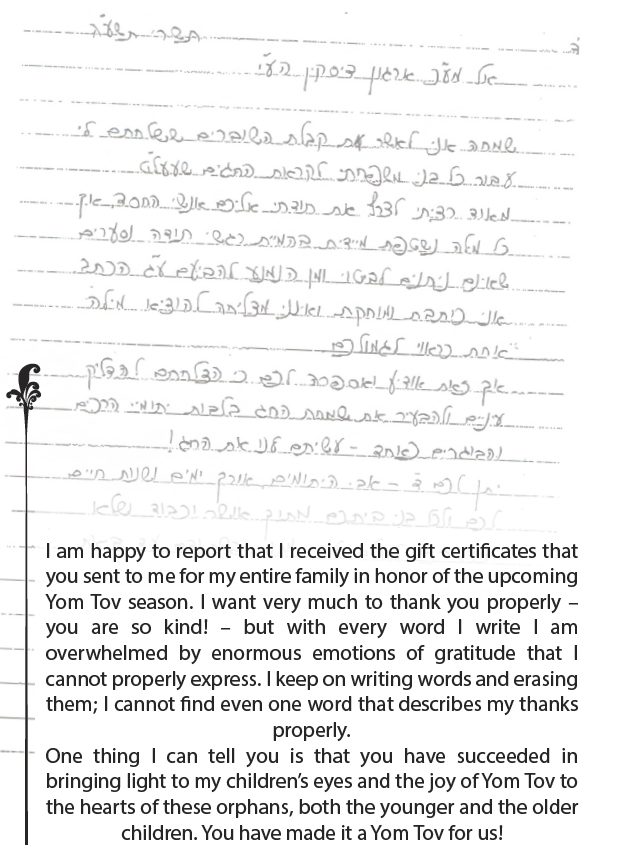 ד' תשרי תשע"ג
אל מע"כ ארגון דיסקין הע"י
שמחה אני לאשר את קבלת השוברים ששלחתם לי
עבור כל בני משפחתי לקראת החגים שעעל"ט
מאוד רציתי לצרף את תודתי אליכם אנשי החסד, אך
כל מלה נשטפת מיידית בהמיית רגשי תודה וסערים
שאינם ניתנים לבטוי ומן הנמנע להביעם ע"ג הכתב.
אני כותבת ומוחקת ואינני מצליחה להוציא מילה
אחת כראוי לגמולכם
אך זאת אודיע ואספרה לכם כי הצלחתם להדליק
עינים ולהבעיר את שמחת החג בלבות יתומי הרכים
והבוגרים כאחד - עשיתם לנו את החג!
יתן לכם ד' - אבי היתומים, אורך ימים ושנות חיים
לכם ולכל בני ביתכם מתוך אושר וכבוד ושלא
I am happy to report that I received the gift certificates that
you sent to me for my entire family in honor of the upcoming
Yom Tov season. I want very much to thank you properly –
you are so kind! – but with every word I write I am
overwhelmed by enormous emotions of gratitude that I
cannot properly express. I keep on writing words and erasing
them; I cannot find even one word that describes my thanks
properly.
One thing I can tell you is that you have succeeded in
bringing light to my children’s eyes and the joy of Yom Tov to
the hearts of these orphans, both the younger and the older
children. You have made it a Yom Tov for us!